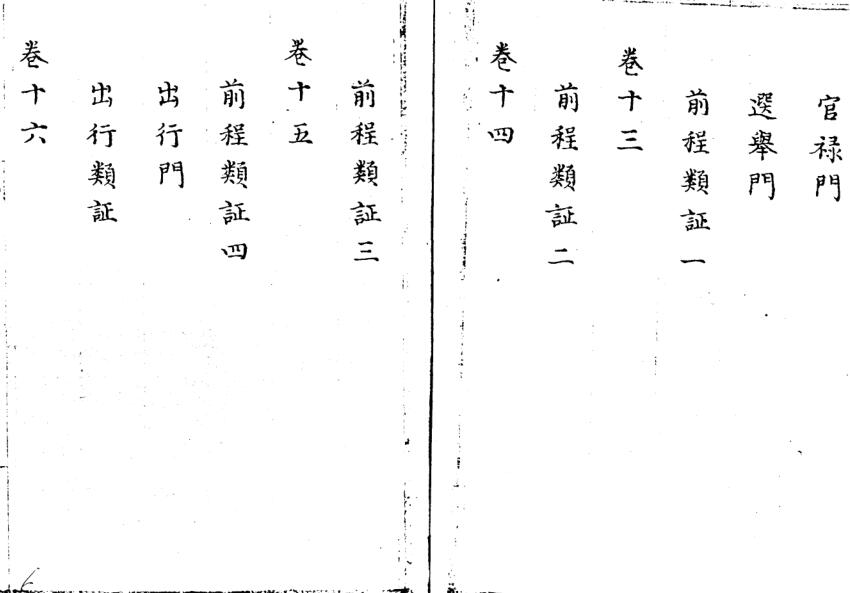 官禄門
選舉門
前程類証一
卷十三
前程類証二
卷十四
前程類証三
卷十五
前程類証四
出行門
出行類証
卷十六